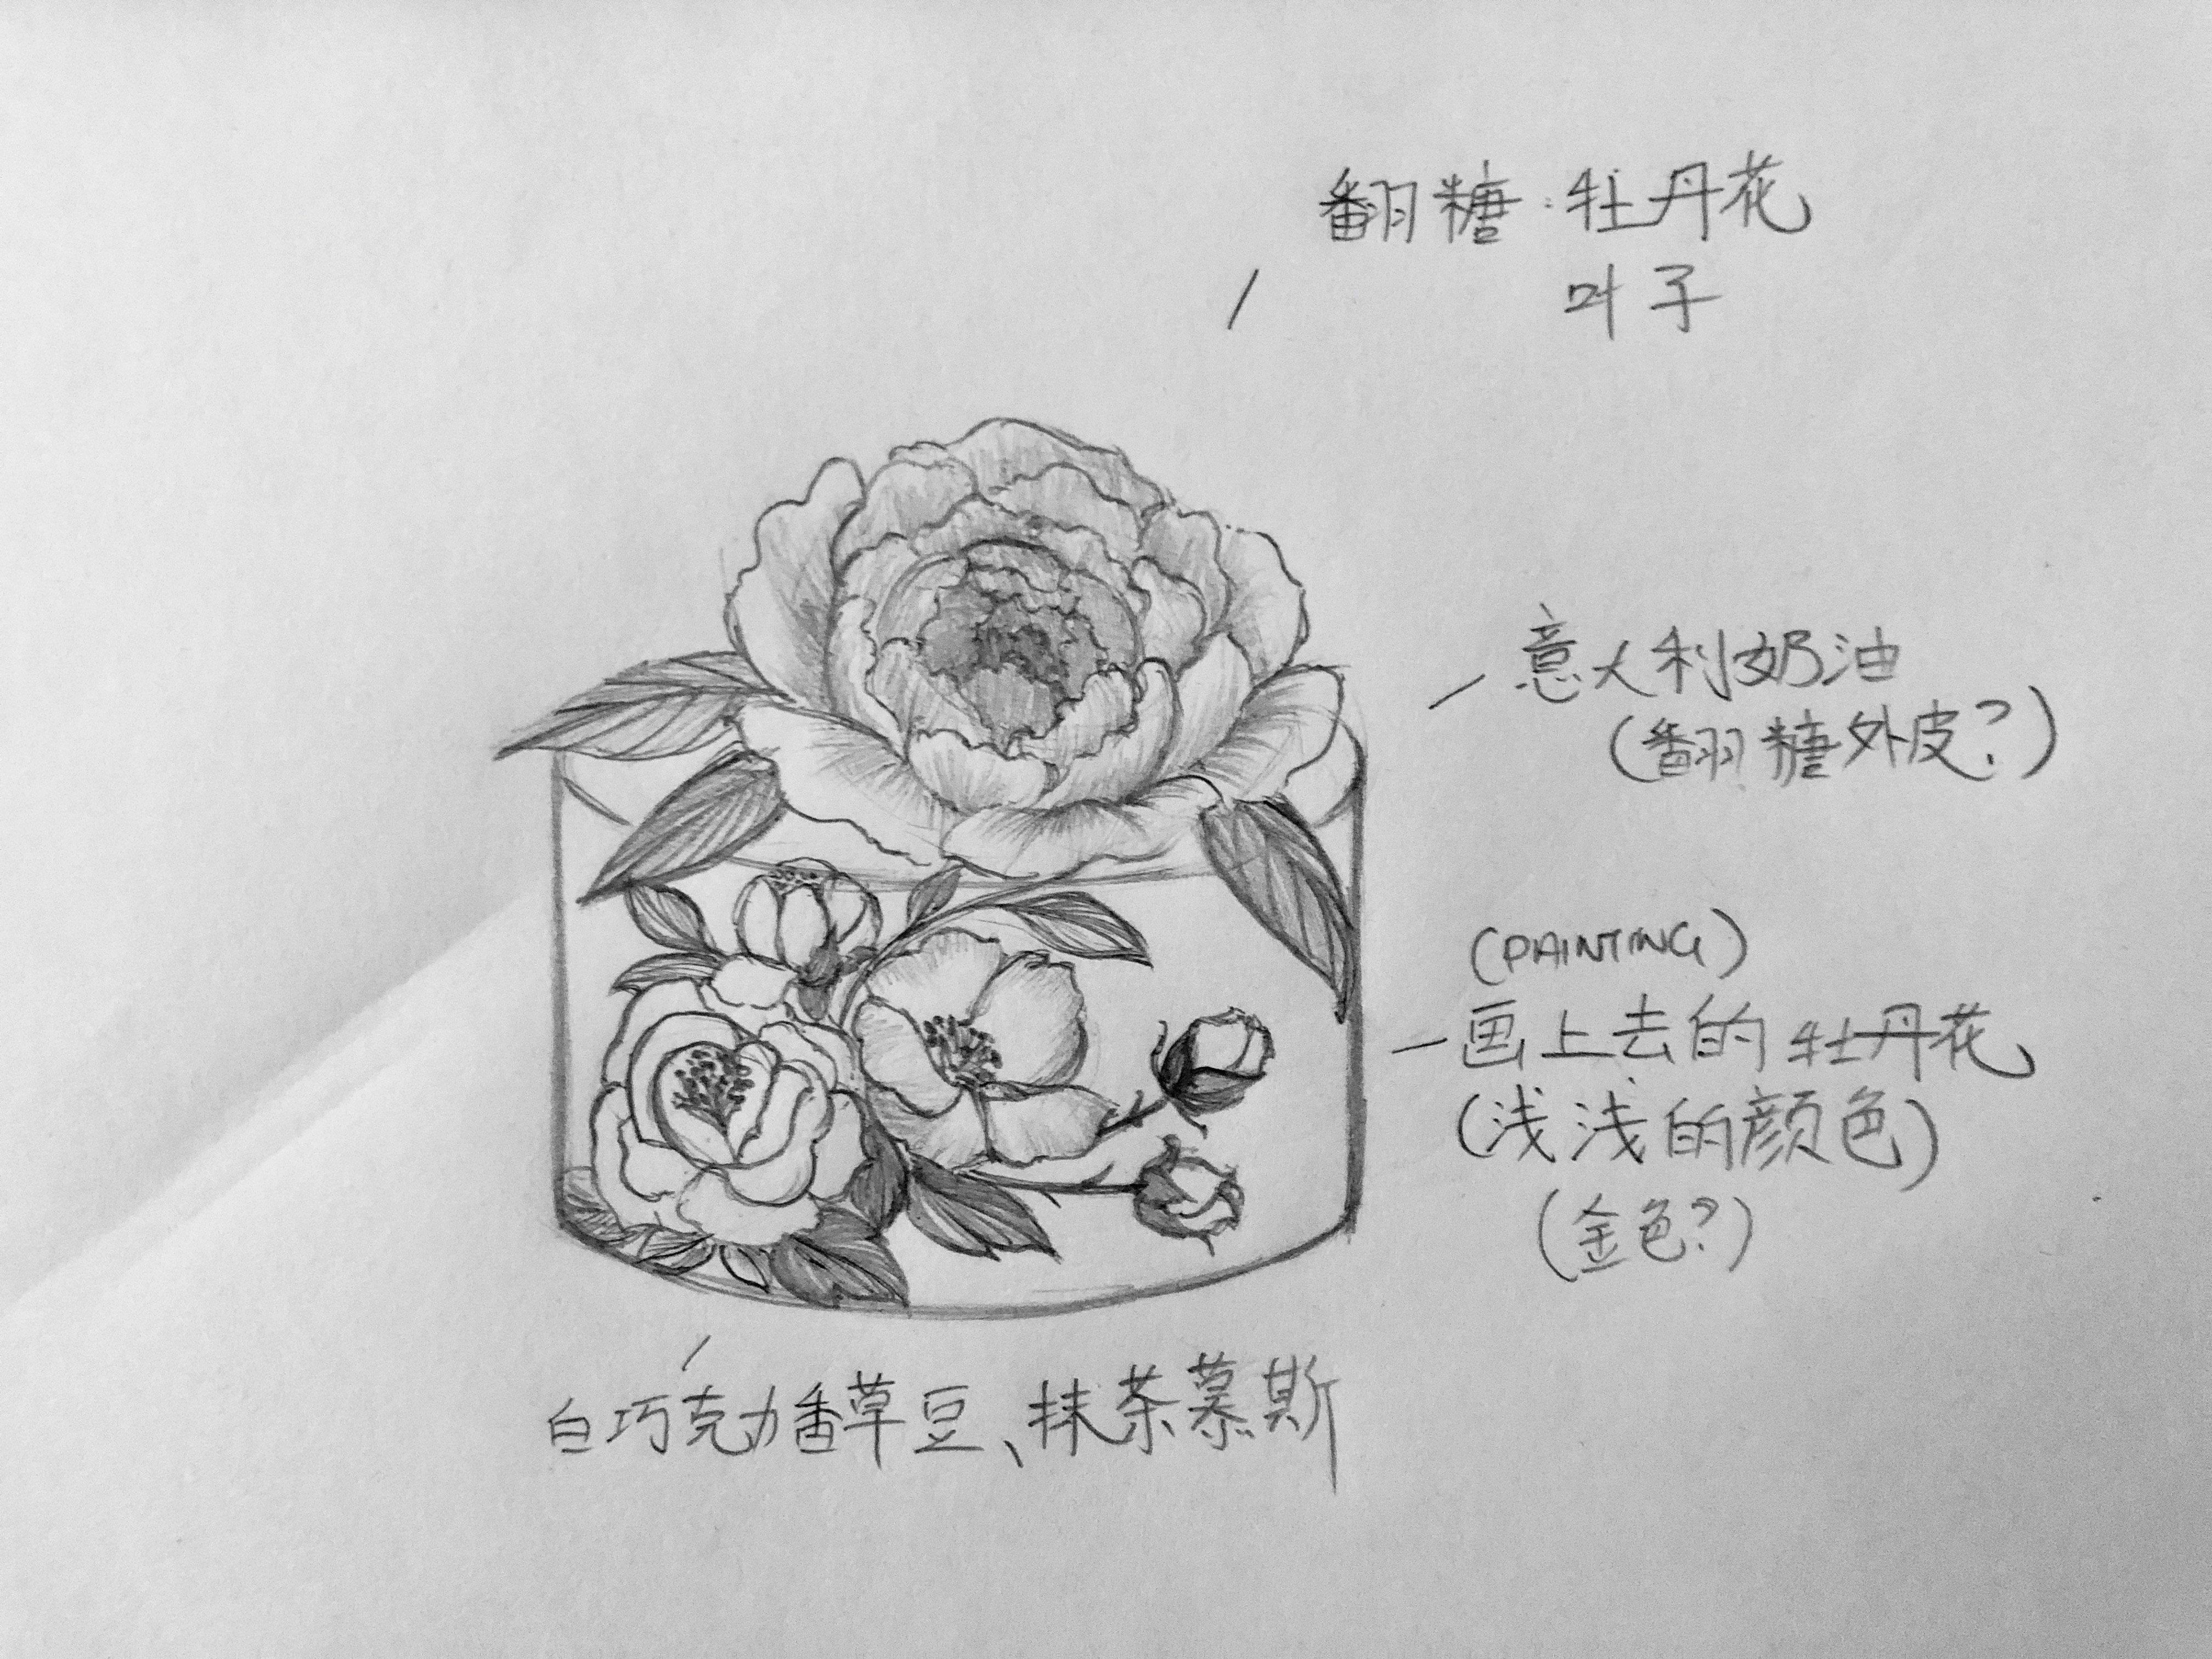 翻糖：牡丹花
叶子
意大利奶油
(翻糖外皮?)
(PAINTING)
画上去的牡丹花
(浅浅的颜色)
(金色?)
白巧克力香草豆、抹茶慕斯